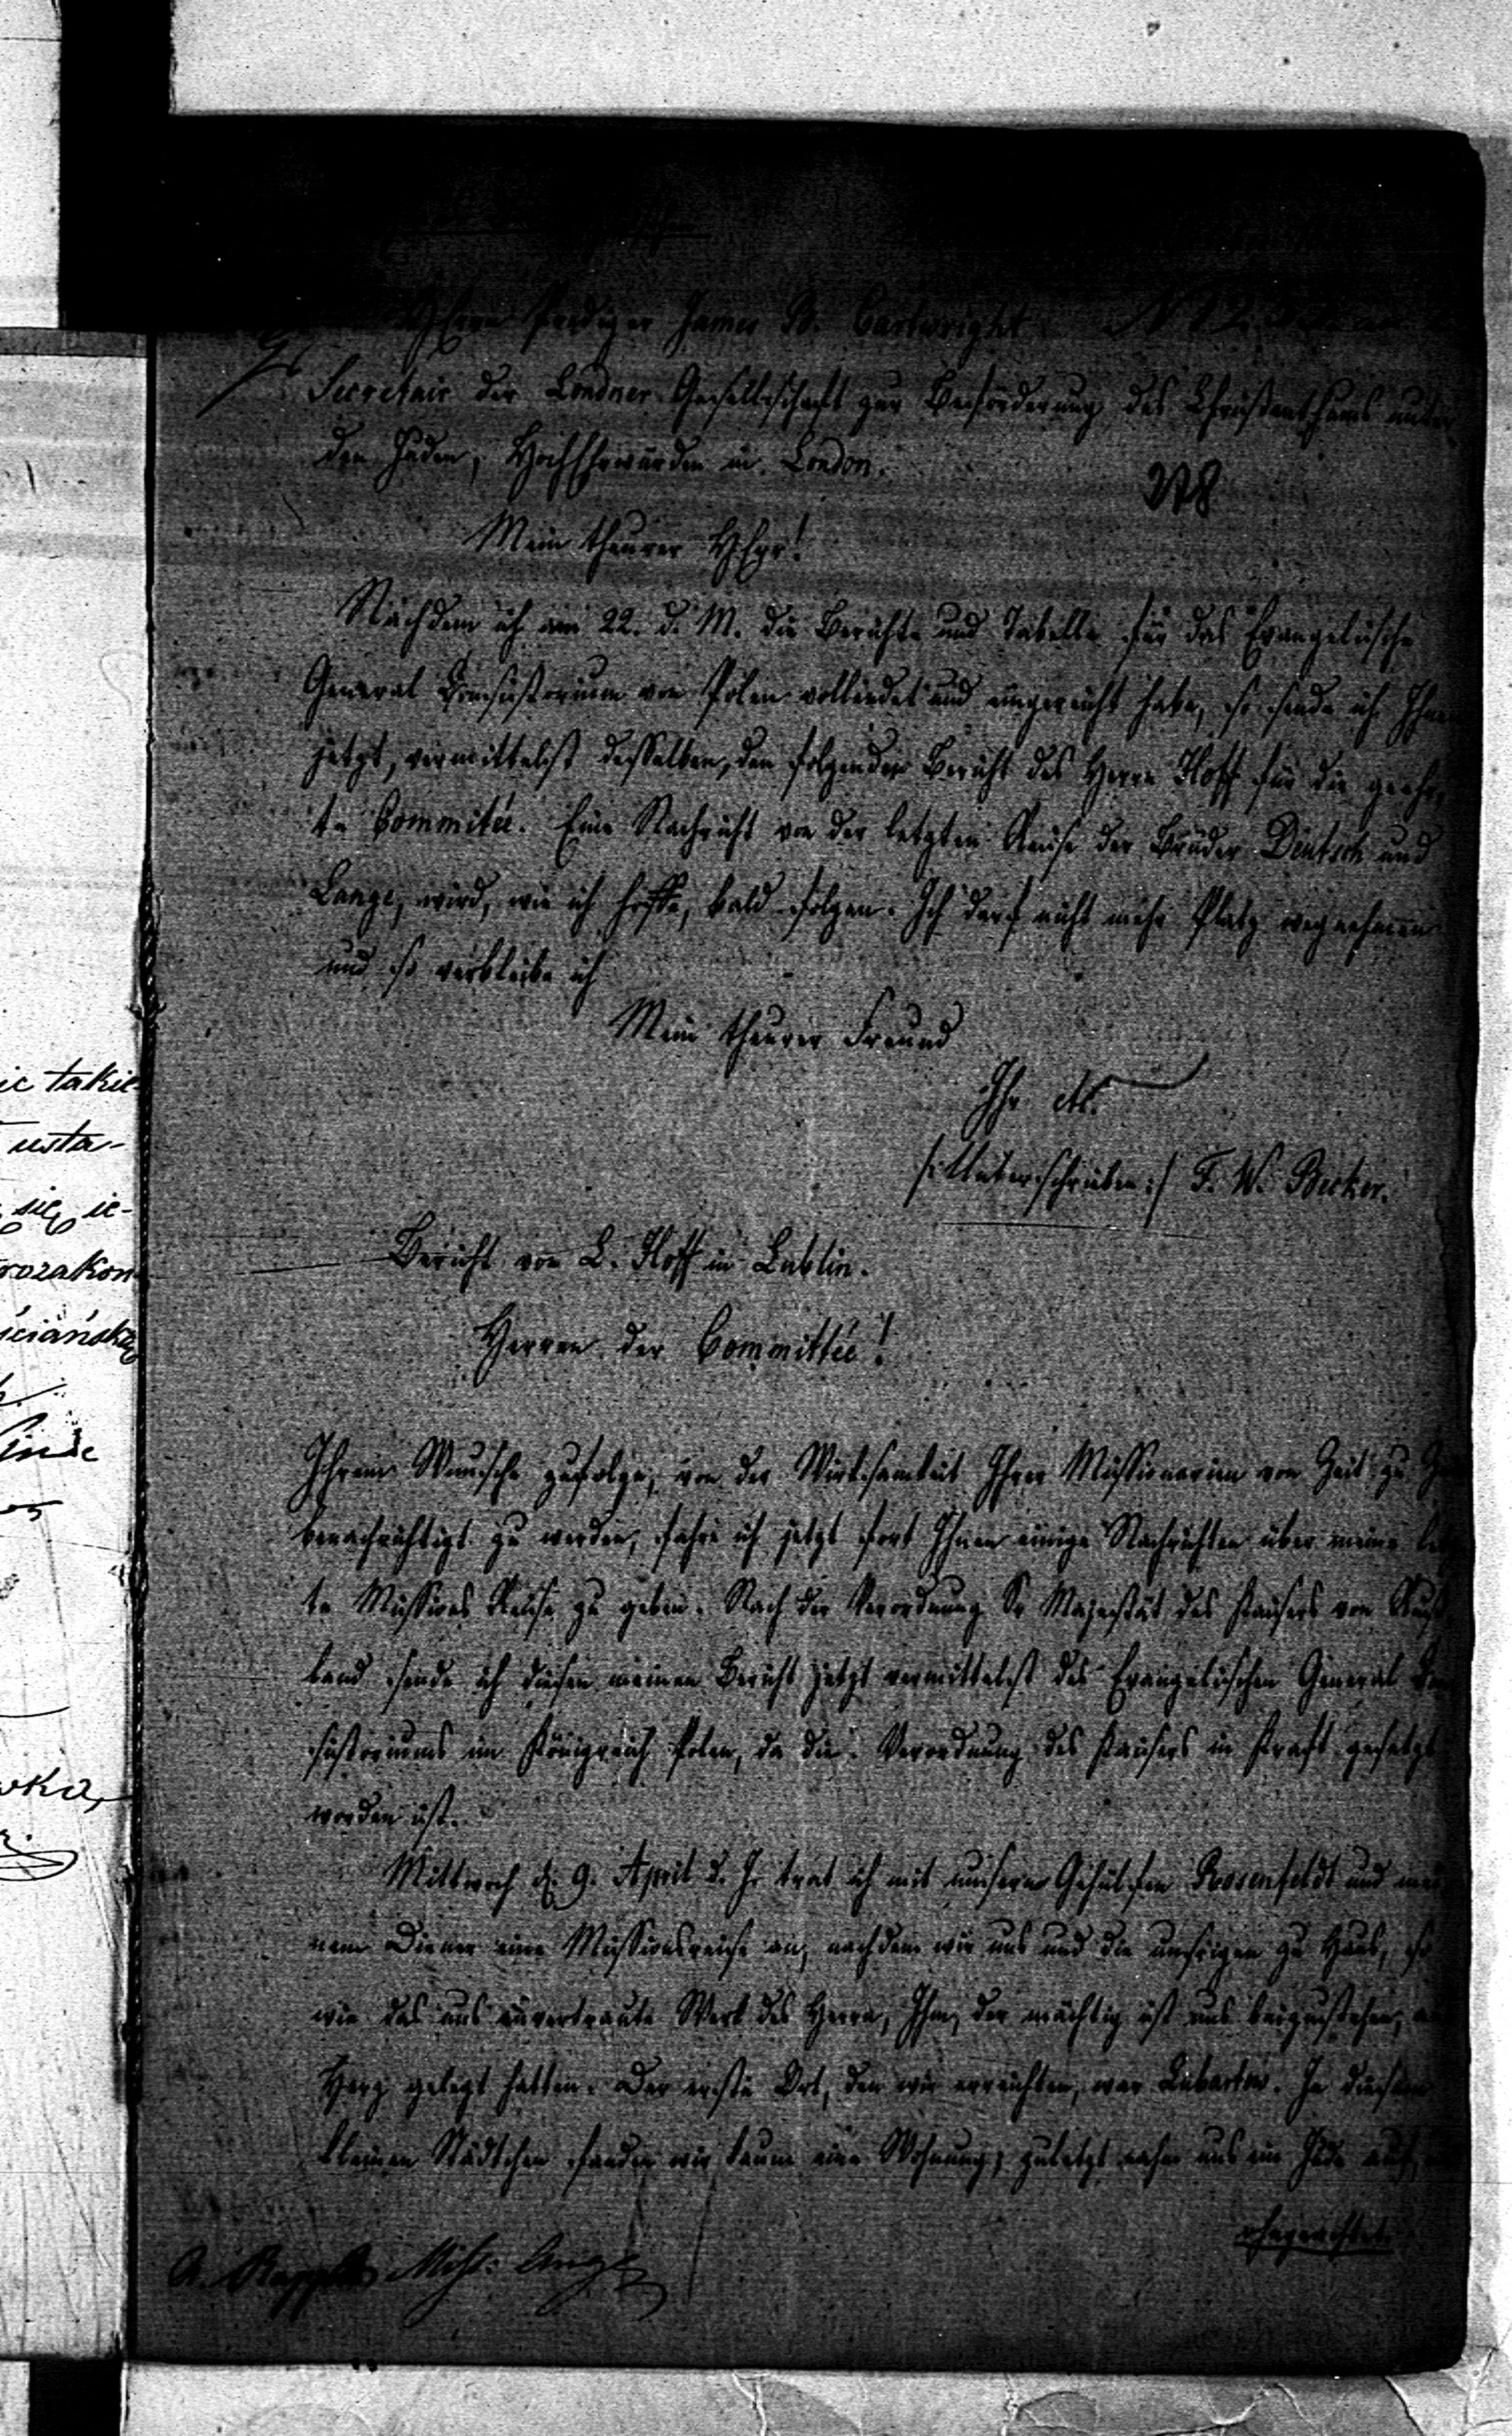 Herrn Prediger James B. Cartwright N 123
Secretair der Londner Gesellschaft zur Beförderung des Christenthums unter
den Juden, HochEhrwürden in London.
Mein theurer Herr!
Nachdem ich am 22. d. M. die Berichte und Tabelle für das Evangelische
General Consistorium von Polen vollendet und eingereicht habe, so sende ich Ihnen
jetzt, vermittelst desselben, den folgenden Bericht des Herrn Hoff für die geehr-
te Committée. Eine Nachricht von der letzten Reise der Brüder Deutsch und
Lange, wird, wie ich hoffe, bald folgen. Ich darf nicht mehr Platz wegnehmen
und so verbleibe ich
Mein theurer Freund
Ihr etc.
/: Unterschrieben :/ F. W. Becker.
Bericht von L. Hoff in Lublin.
Herren der Committée!
Ihrem Wunsche zufolge, von der Wirksamkeit Ihrer Missionarien von Zeit zu
benachrichtigt zu werden, fahre ich jetzt fort Ihnen einige Nachrichten über meine
te Missions Reise zu geben. Nach der Verordnung Sr Majestät des Kaisers von Ruß
land sende ich diesen meinen Bericht jetzt vermittelst des Evangelischen General
sistoriums im Königreich Polen, da die Verordnung des Kaisers in Kraft gesetzt
worden ist.
Mittwoch d. 9. April d. J. trat ich mit unserm Gehülfen Rosenfeldt und mei
nem Diener eine Missionsreise an, nachdem wir uns und die unsrigen zu Haus, so
wie das uns anvertraute Werk des Herrn, Ihm, der mächtig ist uns beizustehen,
Herz gelegt hatten. Der erste Ort, den wir erreichten, war Lubartow. In diesem
kleinen Städtchen fanden wir kaum eine Wohnung; zuletzt nahm uns ein Jude auf,
ohngeachtet
ic takie
usta-
się ie-
rozakon
ściańską